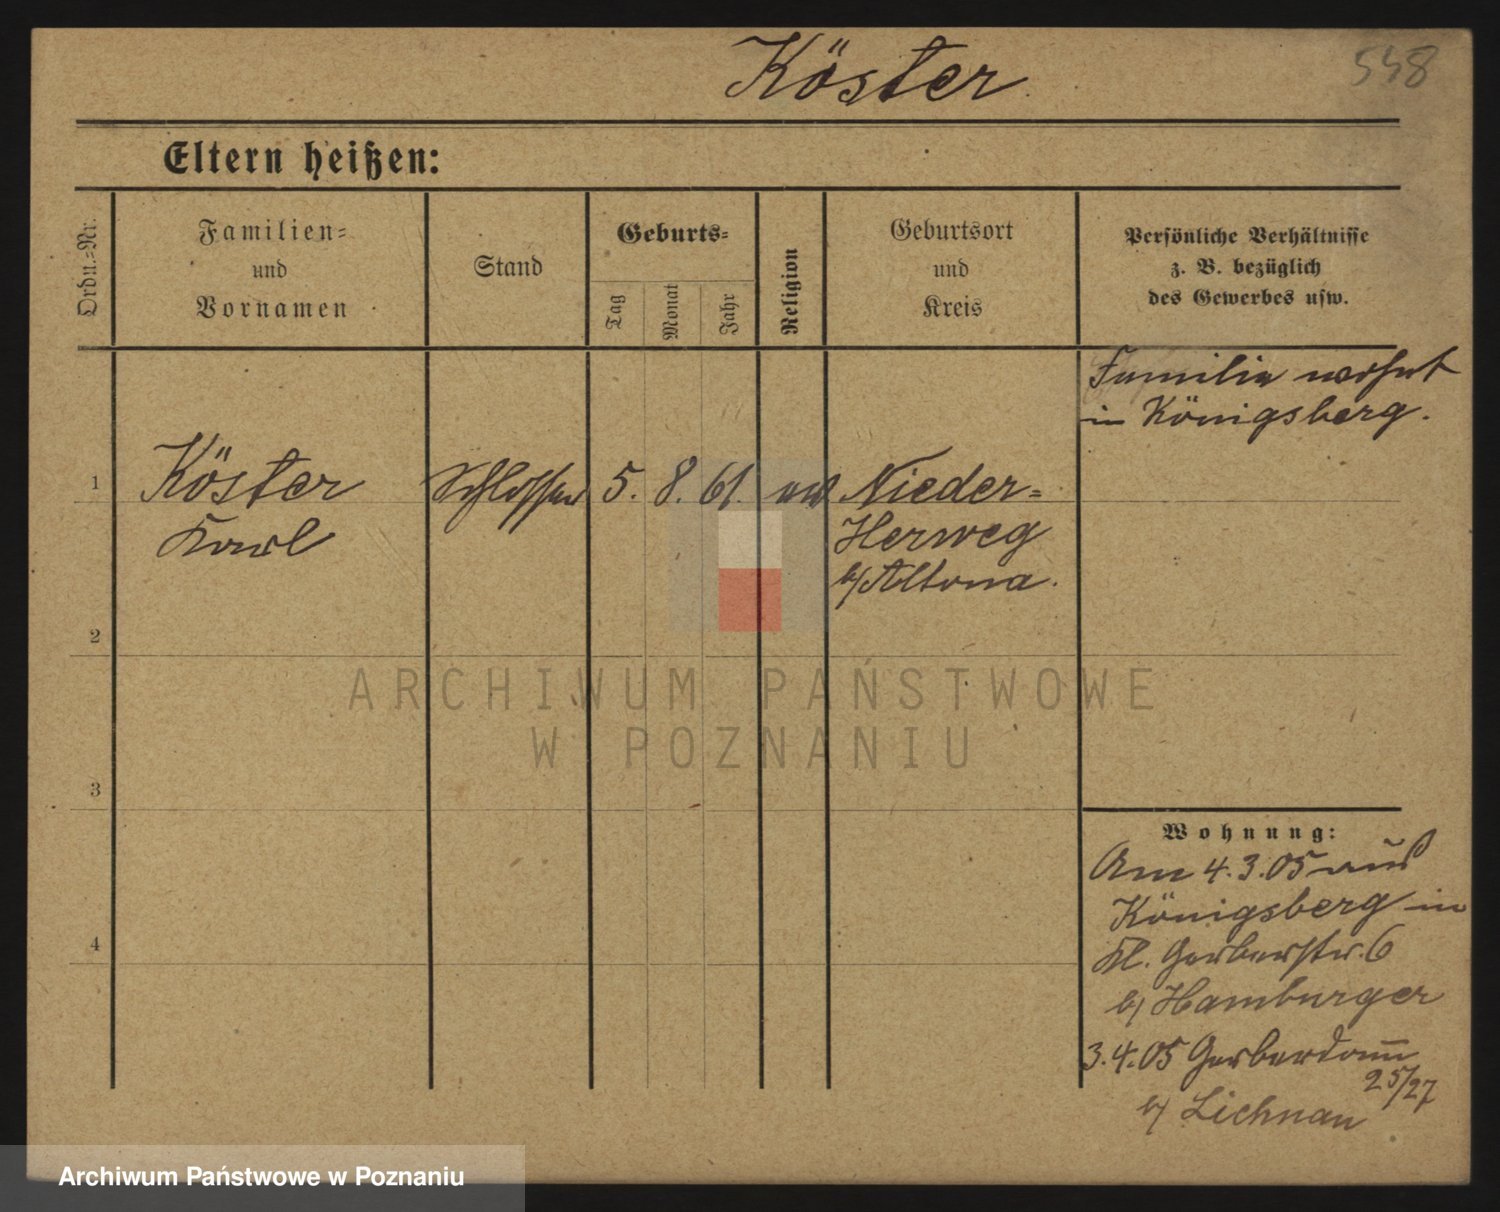 Köster
548
Eltern heißen:
Ordn.=Nr.
Familien=
und
Vornamen
Stand
Geburts=
Tag
Monat
Jahr
Religion
Geburtsort
und
Kreis
Persönliche Verhältnisse
z. B. bezüglich
des Gewerbes usw.
Familie wohnt
in Königsberg.
1
Köster
Karl
Schlosser
5.
8.
61.
Nieder=
Herweg
b/ Altona.
2
3
4
Wohnung:
Am 4.3.05 aus
Königsberg in
Kl. Gerberstr. 6
b/ Hamburger
3.4.05 Gerberdamm
25/27
b/ Lichnau
ARCHIWUM PAŃSTWOWE
W POZNANIU
Archiwum Państwowe w Poznaniu